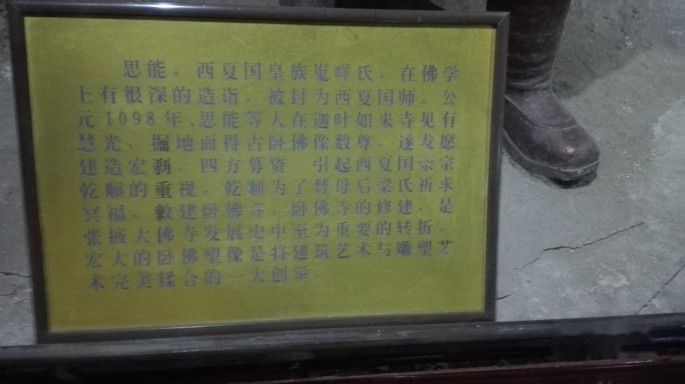 思能，西夏国皇族嵬咩氏，在佛学
上有很深的造诣，被封为西夏国师。公
元1098年，思能等人在迦叶如来寺见有
慧光、掘地而得古卧佛像数尊，遂发愿
建造宏刹、四方募资 引起西夏国宗宗
乾顺的重视。乾顺为了替母后梁氏祈求
冥福，敕建卧佛寺，卧佛寺的修建，是
张掖大佛寺发展史中至为重要的转折，
宏大的卧佛塑像是将建筑艺术与雕塑艺
术完美糅合的一大创举。